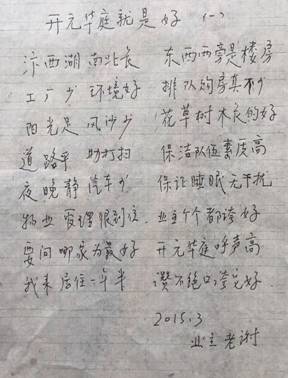 开元华庭就是好 (一)
沂西湖南北长 东西两旁是楼房
工厂少 环境好 排队购房真不少
阳光足 风沙少 花草树木长的好
道路平 勤打扫 保洁队伍素质高
夜晚静 汽车少 保证睡眠无干扰
物业管理很到位 业主个个都夸好
要问哪家为最好 开元华庭呼声高
我来居住一年半 赞不绝口夸它好
2015.3
业主老谢